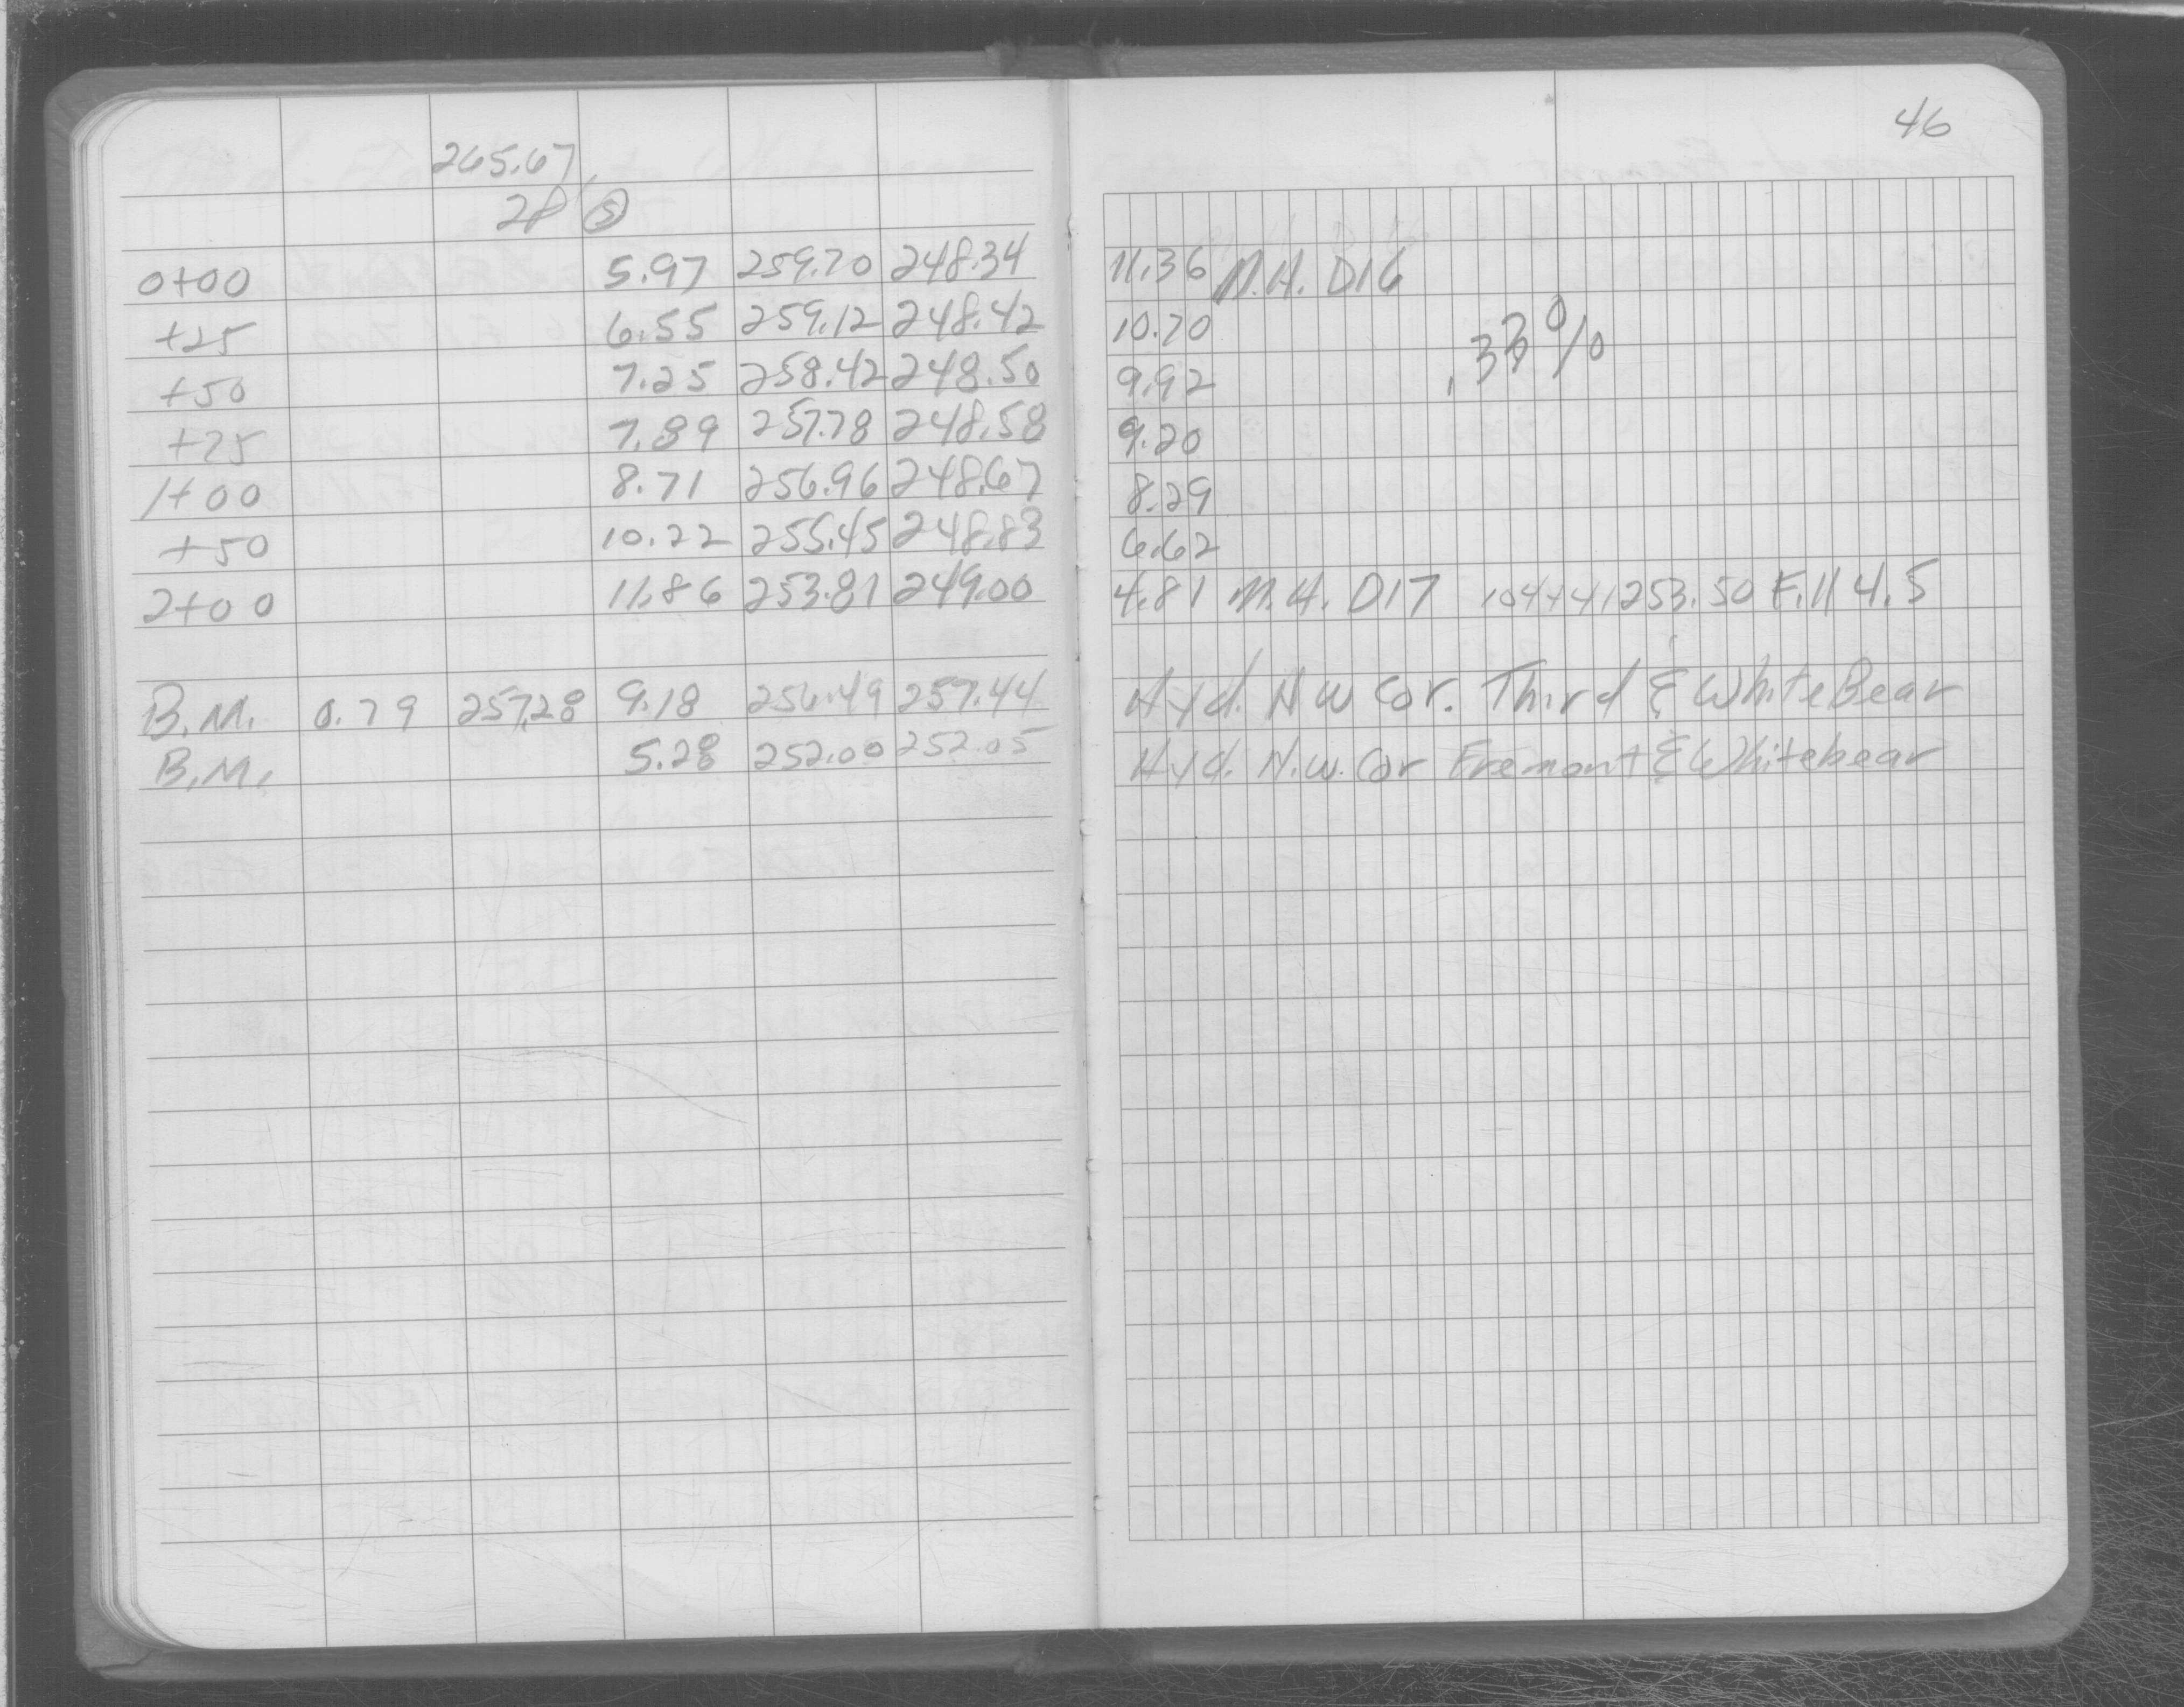 46
265.67
28' (5)
0+00 5.97 259.70 248.34 11.36 M.H. D16
+25 6.55 259.12 248.42 10.70
.33%
+50 7.25 258.42 248.50 9.92
+75 7.89 257.78 248.58 9.20
1+00 8.71 256.96 248.67 8.29
+50 10.22 255.45 248.83 6.62
2+00 11.86 253.81 249.00 4.81 M.H. D17 253.50 Fill 4.5
B.M. 0.79 257.28 9.18 256.49 257.44 Hyd. N W Cor. Third & White Bear
B.M. 5.28 252.00 252.05 Hyd. N.W. Cor Fremont & Whitebear